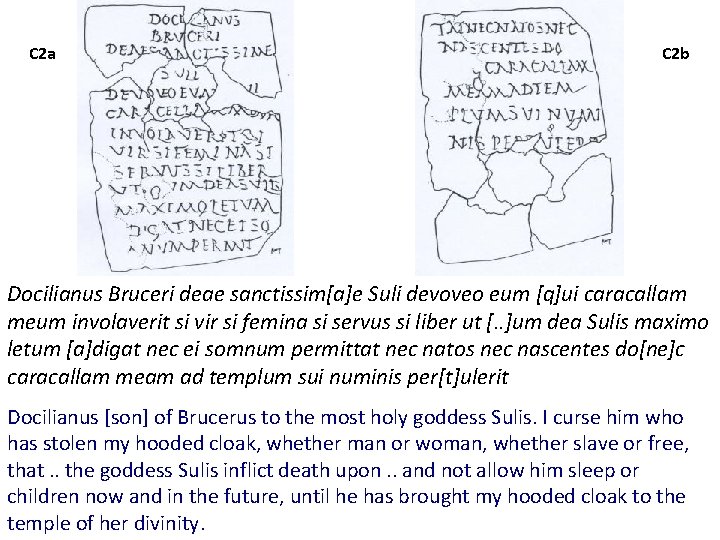 C2a
C2b
DOCILIANUS
BRUCERI
DEAE SANCTISSIME
SULI
DEVOVEO EUM
CARACELLAM
INVOLAVERIT SI
VIR SI FEMINA SI
SERVUS SI LIBER
UT UM DEA SULIS
MAXIMO LETUM
DIGAT NEC EI SO
NUM PERMIT
TAT NEC NATOS NEC
NASCENTES DO
CARACALLAM
MEAM AD TEM
PLUM SUI NUMI
NIS PER ULERIT
Docilianus Bruceri deae sanctissim[a]e Suli devoveo eum [q]ui caracallam
meum involaverit si vir si femina si servus si liber ut [..]um dea Sulis maximo
letum [a]digat nec ei somnum permittat nec natos nec nascentes do[ne]c
caracallam meam ad templum sui numinis per[t]ulerit
Docilianus [son] of Brucerus to the most holy goddess Sulis. I curse him who
has stolen my hooded cloak, whether man or woman, whether slave or free,
that .. the goddess Sulis inflict death upon .. and not allow him sleep or
children now and in the future, until he has brought my hooded cloak to the
temple of her divinity.